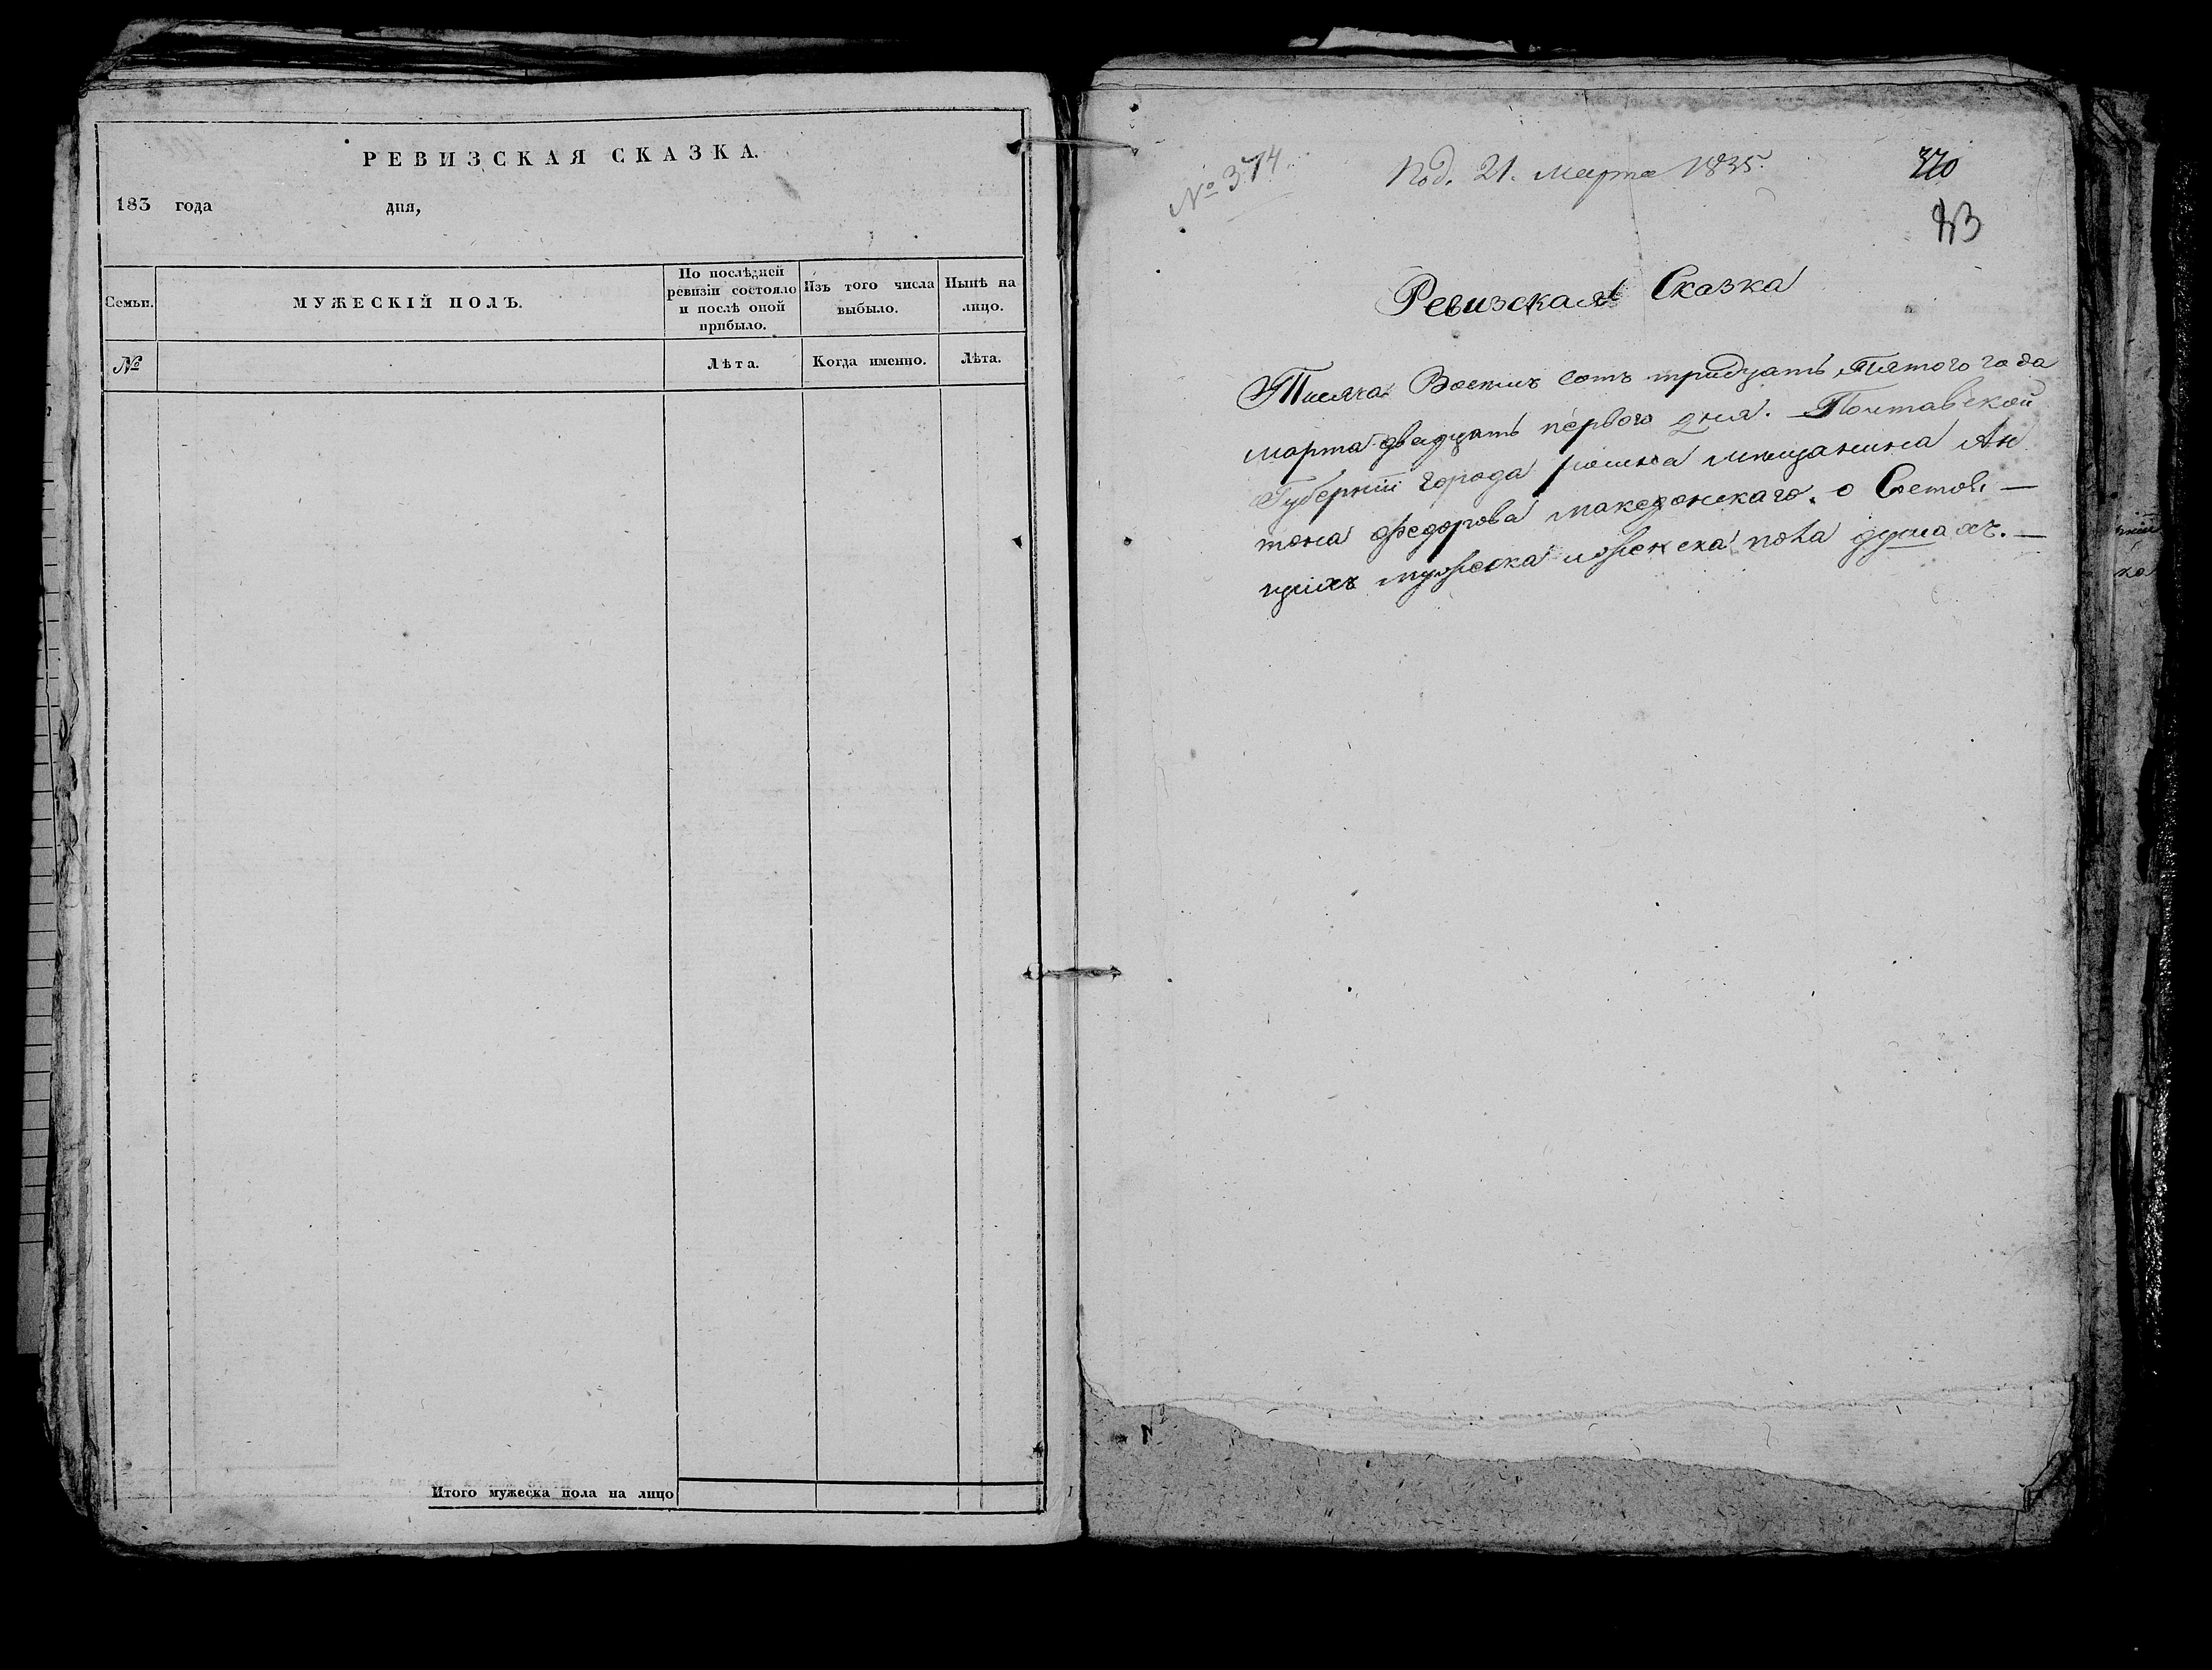 РЕВИЗСКАЯ СКАЗКА.
183 года дня,
Семьи.
МУЖЕСКІЙ ПОЛЪ.
По послѣдней
ревизіи состояло
и послѣ оной
прибыло.
Изъ того числа
выбыло.
Нынѣ на
лицо.
№
Лѣта.
Когда именно.
Лѣта.
Итого мужеска пола на лицо
№ 374.
Под. 21. марта 1835.
370
Ревизская Сказка
Тисяча Восемъ сотъ тридцать Пятого года
марта двадцать первого дня. Полтавской
Губерніи города ромна мещанина Ан
тона федорова македонскаго. о Состоя —
щихъ мужеска и женска пола душахъ. —